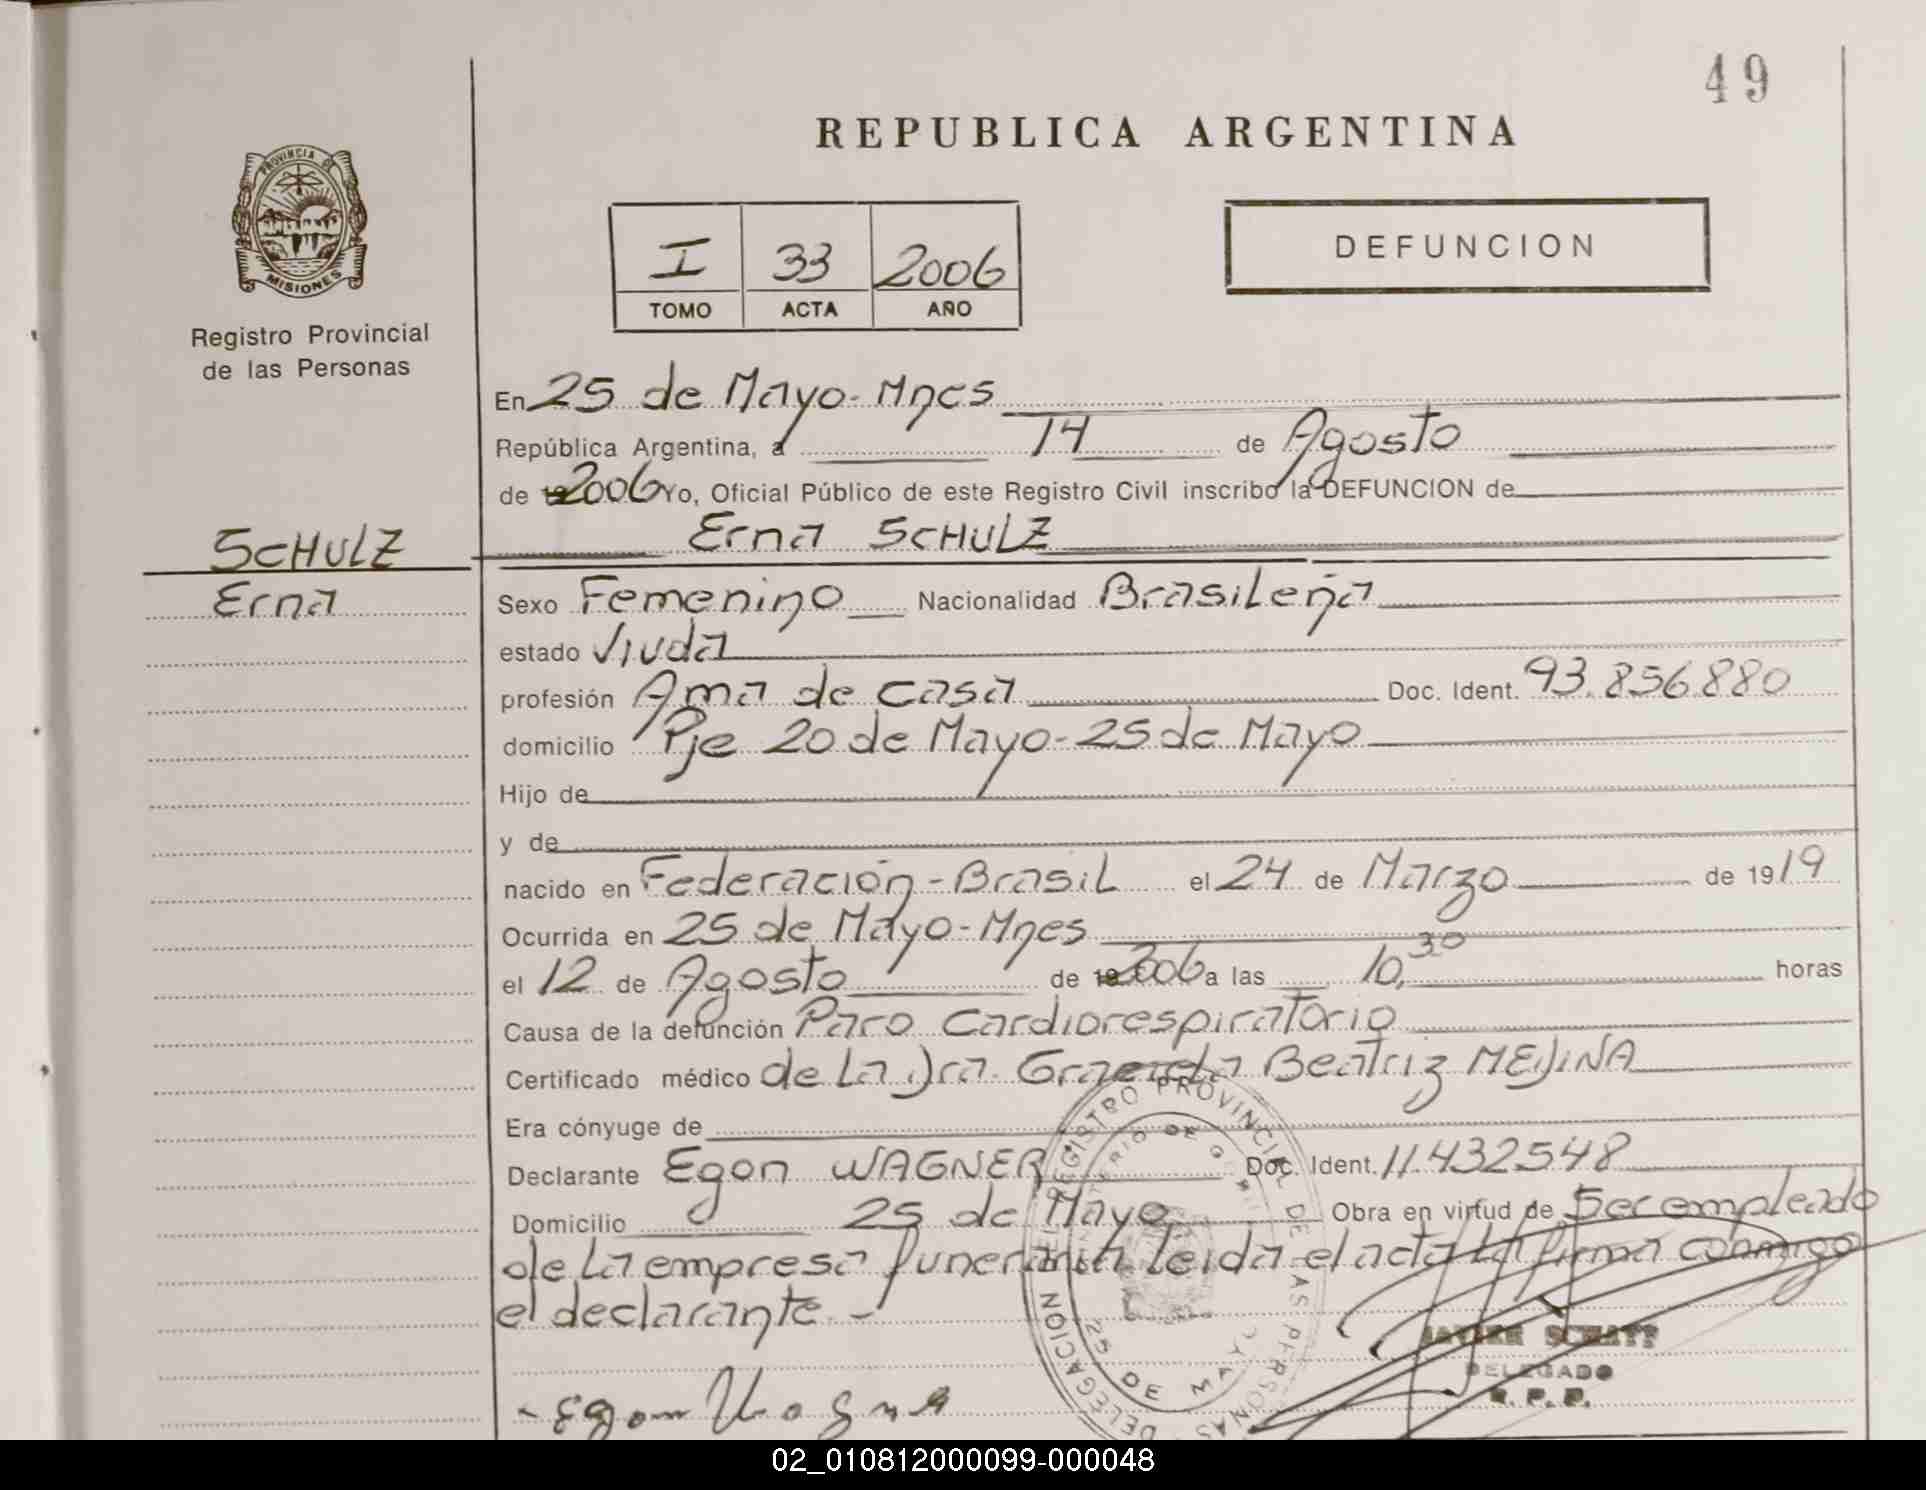 49
REPUBLICA ARGENTINA
PROVINCIA DE
MISIONES
Registro Provincial
de las Personas
I 33 2006
TOMO ACTA AÑO
DEFUNCION
En 25 de Mayo - Mnes
República Argentina, a 14 de Agosto
de 2006 Yo, Oficial Público de este Registro Civil inscribo la DEFUNCION de
Erna SCHULZ
SCHULZ
Erna
Sexo Femenino Nacionalidad Brasileña
estado Viuda
profesión Ama de casa Doc. Ident. 93.856.880
domicilio Pje 20 de Mayo - 25 de Mayo
Hijo de
y de
nacido en Federación - Brasil el 24 de Marzo de 1919
Ocurrida en 25 de Mayo - Mnes
el 12 de Agosto de 2006 a las 10,30 horas
Causa de la defunción Paro Cardiorespiratorio
Certificado médico de La Dra. Graciela Beatriz MEDINA
Era cónyuge de
Declarante Egon WAGNER Doc. Ident. 11.432548
Domicilio 25 de Mayo Obra en virtud de Ser empleado
de La empresa funeraria leida el acta La firma conmigo
el declarante. -
- Egon Wagner
REGISTRO PROVINCIAL DE LAS PERSONAS
DELEGACION
25 DE MAYO
DELEGADO
R. P. P.
02_010812000099-000048